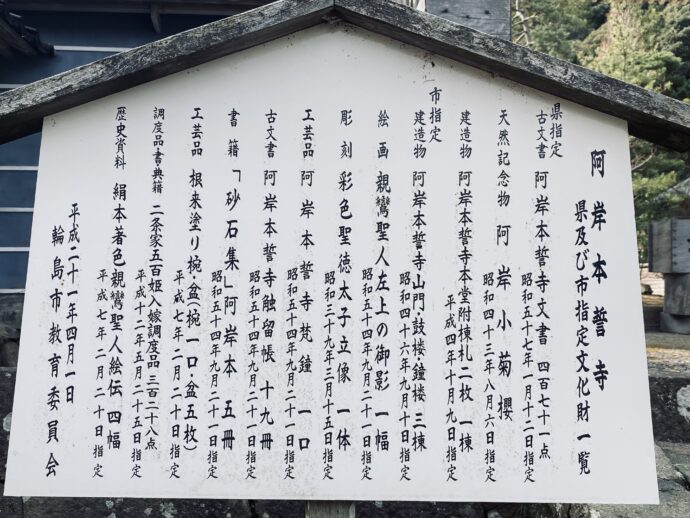 阿岸本誓寺
県及び市指定文化財一覧
県指定
古文書 阿岸本誓寺文書 四百七十一点
昭和五十七年一月十二日指定
天然記念物 阿岸小菊櫻
昭和四十三年八月六日指定
建造物 阿岸本誓寺本堂附棟札二枚 一棟
平成四年十月九日指定
市指定
建造物 阿岸本誓寺山門・鼓楼・鐘楼 三棟
昭和四十六年九月十日指定
絵画 親鸞聖人左上の御影 一幅
昭和五十四年九月二十一日指定
彫刻 彩色聖徳太子立像 一体
昭和三十九年三月十五日指定
工芸品 阿岸本誓寺梵鐘 一口
昭和五十四年九月二十一日指定
古文書 阿岸本誓寺触留帳 十九冊
昭和五十四年九月二十一日指定
書籍 「砂石集」阿岸本 五冊
昭和五十四年九月二十一日指定
工芸品 根来塗り椀・盆(椀一口・盆五枚)
平成七年二月二十日指定
調度品・書典籍 二条家五百姫入嫁調度品 三百二十八点
平成十二年五月二十五日指定
歴史資料 絹本著色親鸞聖人絵伝 四幅
平成七年二月二十日指定
平成二十一年四月一日
輪島市教育委員会